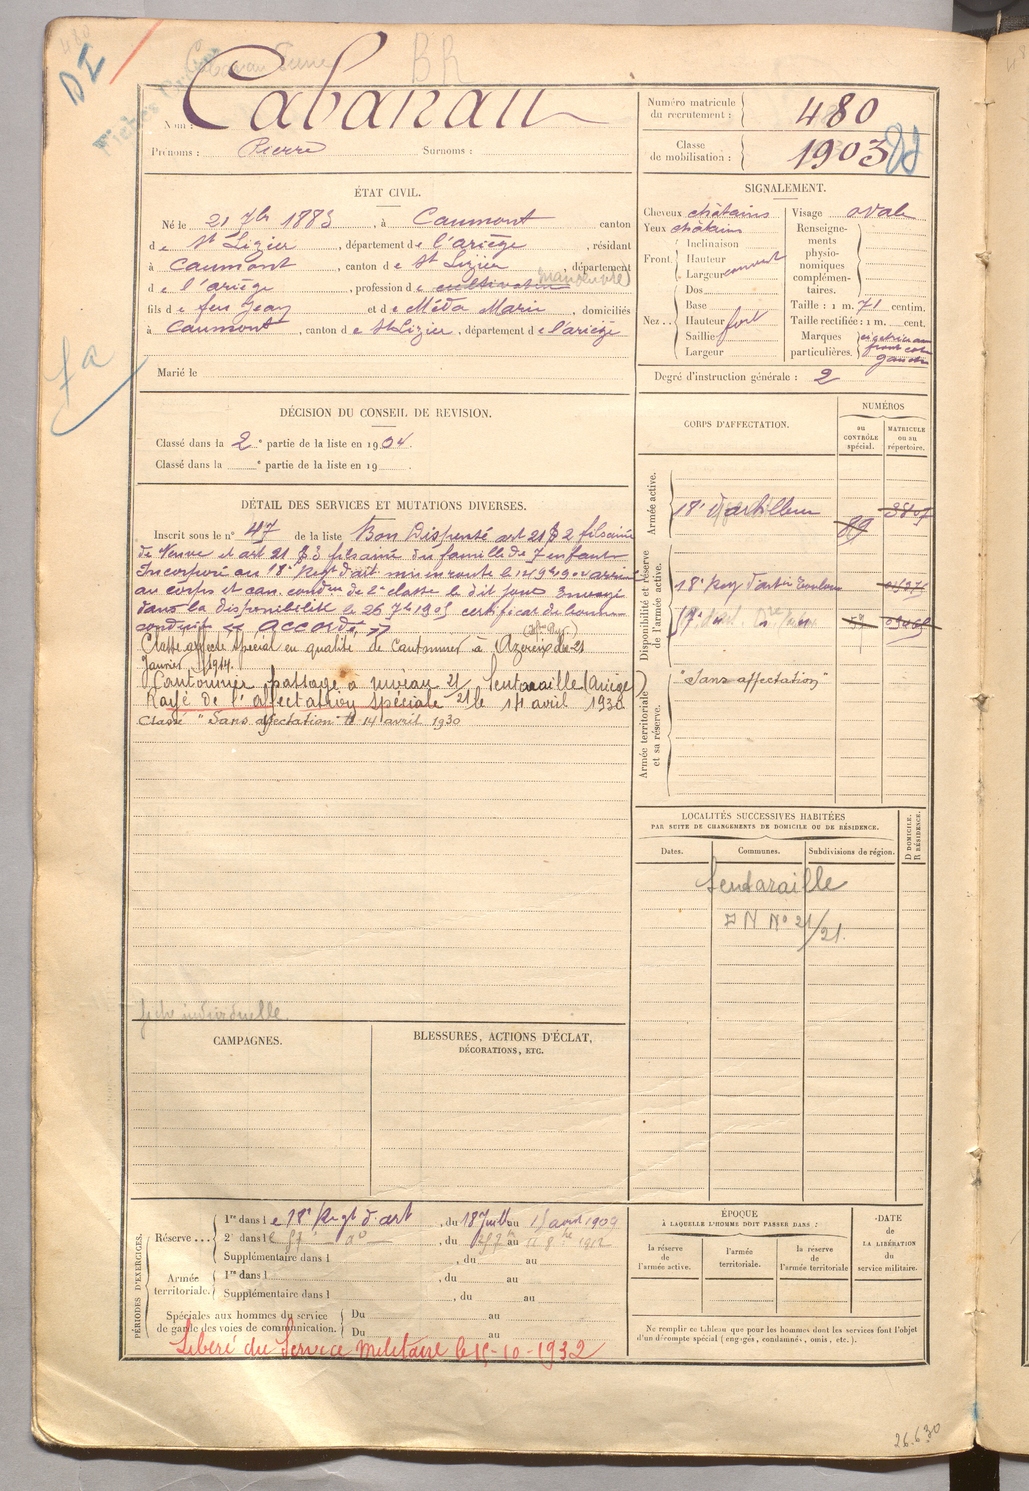 DI
BR
Nom : Cabanau
Prénoms : Pierre Surnoms :
Numéro matricule du recrutement : 480
Classe de mobilisation : 1903
ÉTAT CIVIL.
Né le 21 7bre 1883, à Caumont, canton
de St Lizier, département de l'ariège, résidant
à Caumont, canton de St Lizier, département
de l'ariège, profession de cultivateur manœuvre
fils de feu Jean et de Méda Marie, domiciliés
à Caumont, canton de St Lizier, département de l'ariège
Marié le
SIGNALEMENT.
Cheveux châtains Visage ovale
Yeux châtains Renseignements physionomiques complémentaires.
Front. Inclinaison
Hauteur
Largeur couvert
Nez.. Dos
Base
Hauteur fort
Saillie
Largeur
Taille : 1 m. 71 centim.
Taille rectifiée : 1 m. cent.
Marques particulières. cicatrice au
front côté
gauche
Degré d'instruction générale : 2
DÉCISION DU CONSEIL DE REVISION.
Classé dans la 2e partie de la liste en 1904.
Classé dans la e partie de la liste en 19 .
CORPS D'AFFECTATION.
NUMÉROS
au CONTRÔLE spécial.
MATRICULE ou au répertoire.
Armée active.
18e d'artillerie 89
Disponibilité et réserve de l'armée active.
18e Reg d'artie Toulouse
57
Armée territoriale et sa réserve.
"Sans affectation"
DÉTAIL DES SERVICES ET MUTATIONS DIVERSES.
Inscrit sous le n° 47 de la liste Bon Dispensé art 21 § 2 fils aîné
de Veuve et art 21 § 3 fils aîné de famille de 7 enfants
Incorporé au 18e Regt d'art. mis en route le 14 9bre 1904 arrivé
au corps et can. condr de 2e classe le dit jour Envoyé
dans la disponibilité le 26 7bre 1905 certificat de bonne
conduite "ACCORDÉ"
Classé affecté spécial en qualité de Cantonnier à Azereix le 21
Janvier 1914.
Cantonnier passage à niveau 21 Sentaraille (Ariège)
Rayé de l'affectation spéciale 21 le 14 avril 1930
Classé "Sans affectation" le 14 avril 1930
fiche individuelle.
LOCALITÉS SUCCESSIVES HABITÉES
PAR SUITE DE CHANGEMENTS DE DOMICILE OU DE RÉSIDENCE.
Dates. Communes. Subdivisions de région.
D DOMICILE. R RÉSIDENCE.
Sentaraille
PN No 21/21.
CAMPAGNES.
BLESSURES, ACTIONS D'ÉCLAT,
DÉCORATIONS, ETC.
PÉRIODES D'EXERCICES.
Réserve ... 1re dans le 18e Regt d'art, du 18 au 1909
2e dans le 57e do, du au 1912
Supplémentaire dans l , du au
Armée territoriale. 1re dans l , du au
Supplémentaire dans l , du au
Spéciales aux hommes du service de garde des voies de communication. Du au
Du au
Libéré du Service Militaire le 15-10-1932
ÉPOQUE
À LAQUELLE L'HOMME DOIT PASSER DANS :
la réserve de l'armée active.
l'armée territoriale.
la réserve de l'armée territoriale
DATE
de LA LIBÉRATION
du service militaire.
Ne remplir ce tableau que pour les hommes dont les services font l'objet
d'un décompte spécial (engagés, condamnés, omis, etc.).
26.6.30